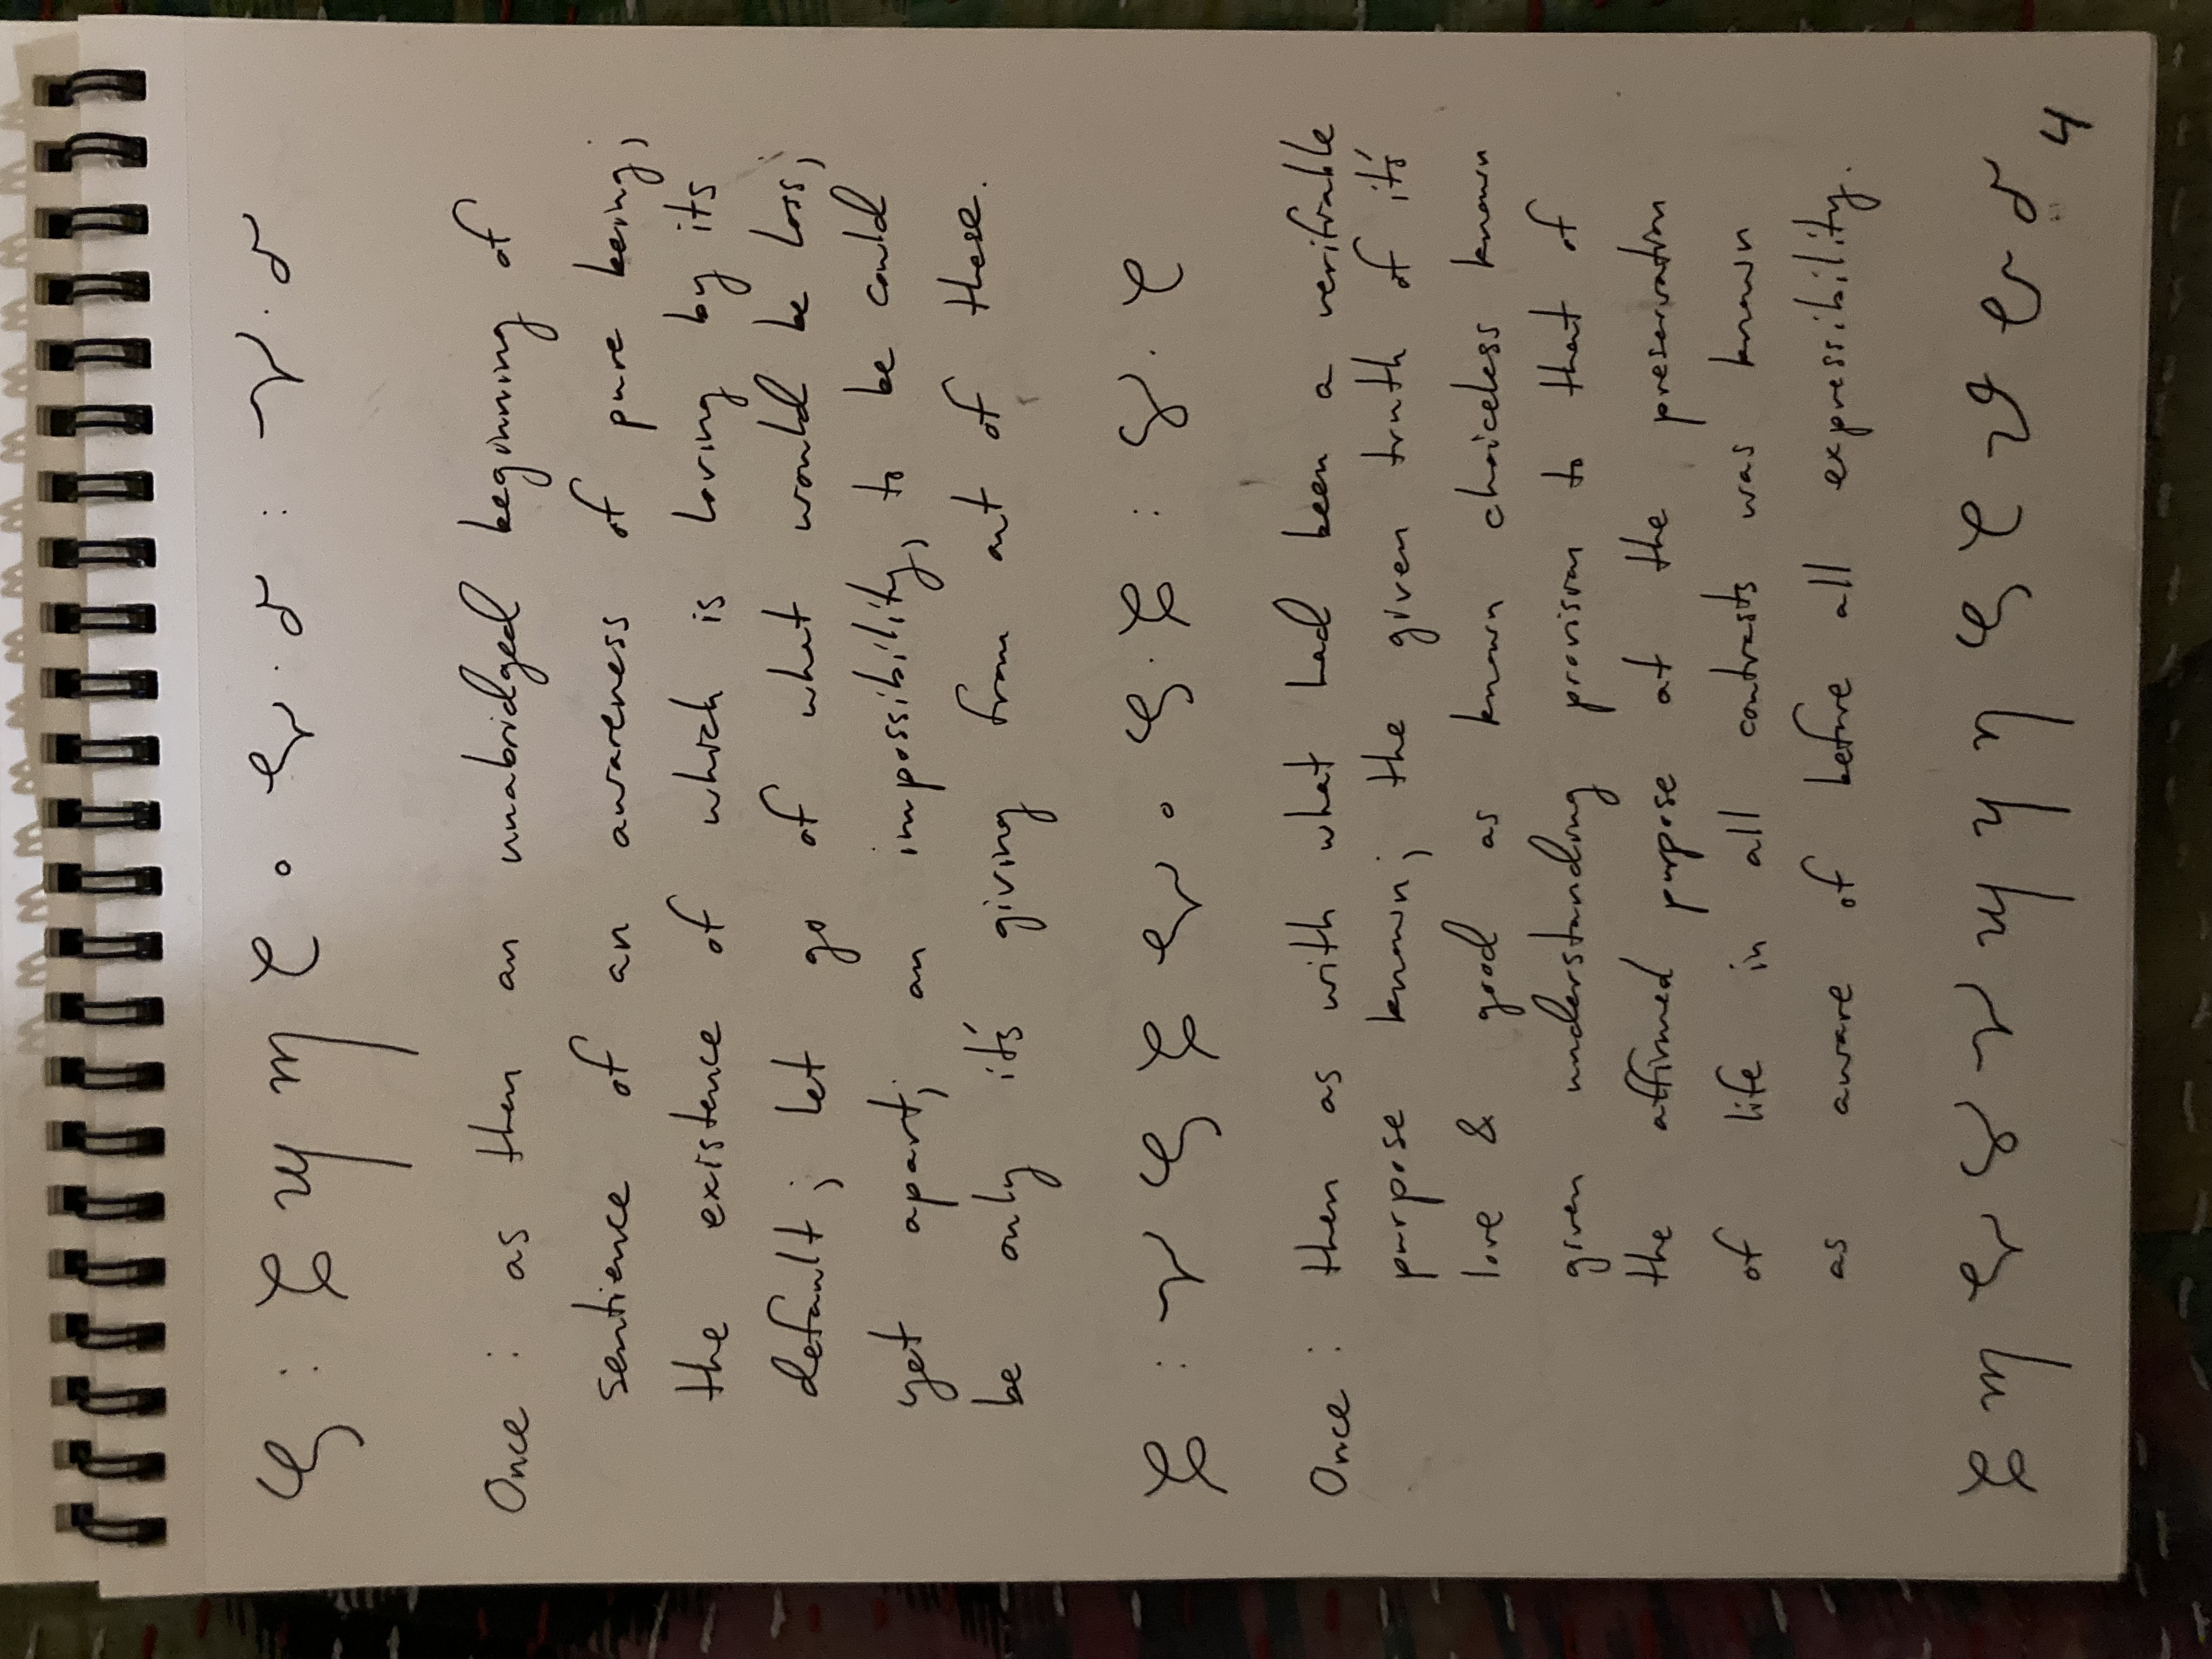 Once : as then an unabridged beginning of
sentience of an awareness of pure being,
the existence of which is loving by its
default ; let go of what would be loss,
yet apart, an impossibility, to be could
be only it's giving from out of these.
Once : then as with what had been a verifiable
purpose known; the given truth of it's
love & good as known choiceless known
given understanding provision to that of
the affirmed purpose at the preservation
of life in all contrasts was known
as aware of before all expressibility.
4